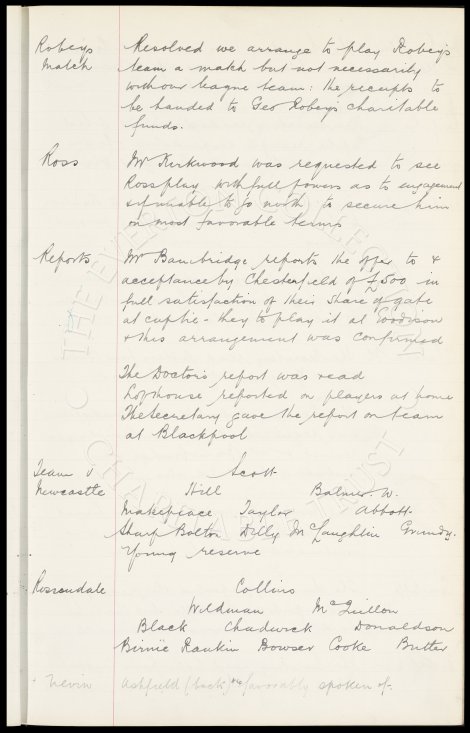 Robeys Resolved we arrange to play Robey's
Match team a match but not necessarily
with our league team: the receipts to
be handed to Geo Robey's charitable
funds.
Ross Mr Kirkwood was requested to see
Ross play with full powers as to engagement
& if suitable to go north to secure him
on most favorable terms
Reports Mr Bainbridge reports the offer to &
acceptance by Chesterfield of £500 in
full satisfaction of their share of gate
at cuptie - they to play it at Goodison
& this arrangement was confirmed
The Doctor's report was read
Lofthouse reported on players at home
The Secretary gave the report on team
at Blackpool
Team v Scott
Newcastle Hill Balmer. W.
Makepeace Taylor Abbott
Sharp Bolton Dilly McLaughlin Grundy.
Young reserve
Rossendale Collins
Wildman McQuillon
Black Chadwick Donaldson
Birnie Rankin Dowser Cooke Butter
Nevin Ashfield (back) favorably spoken of.
THE EVERTON COLLECTION
CHARITABLE TRUST